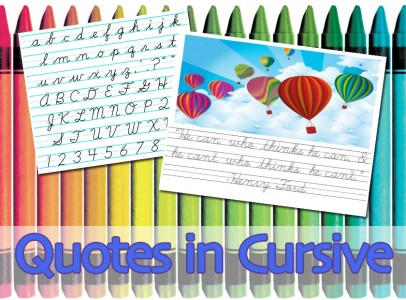 a b c d e f g h i j k
l m n o p q r s t
u v w x y z
A B C D E F G H
J K L M N O P Q
S T U V W X
1 2 3 4 5 6 7 8
"He can who thinks he can, &
he can't who thinks he can't."
Henry Ford
Quotes in Cursive